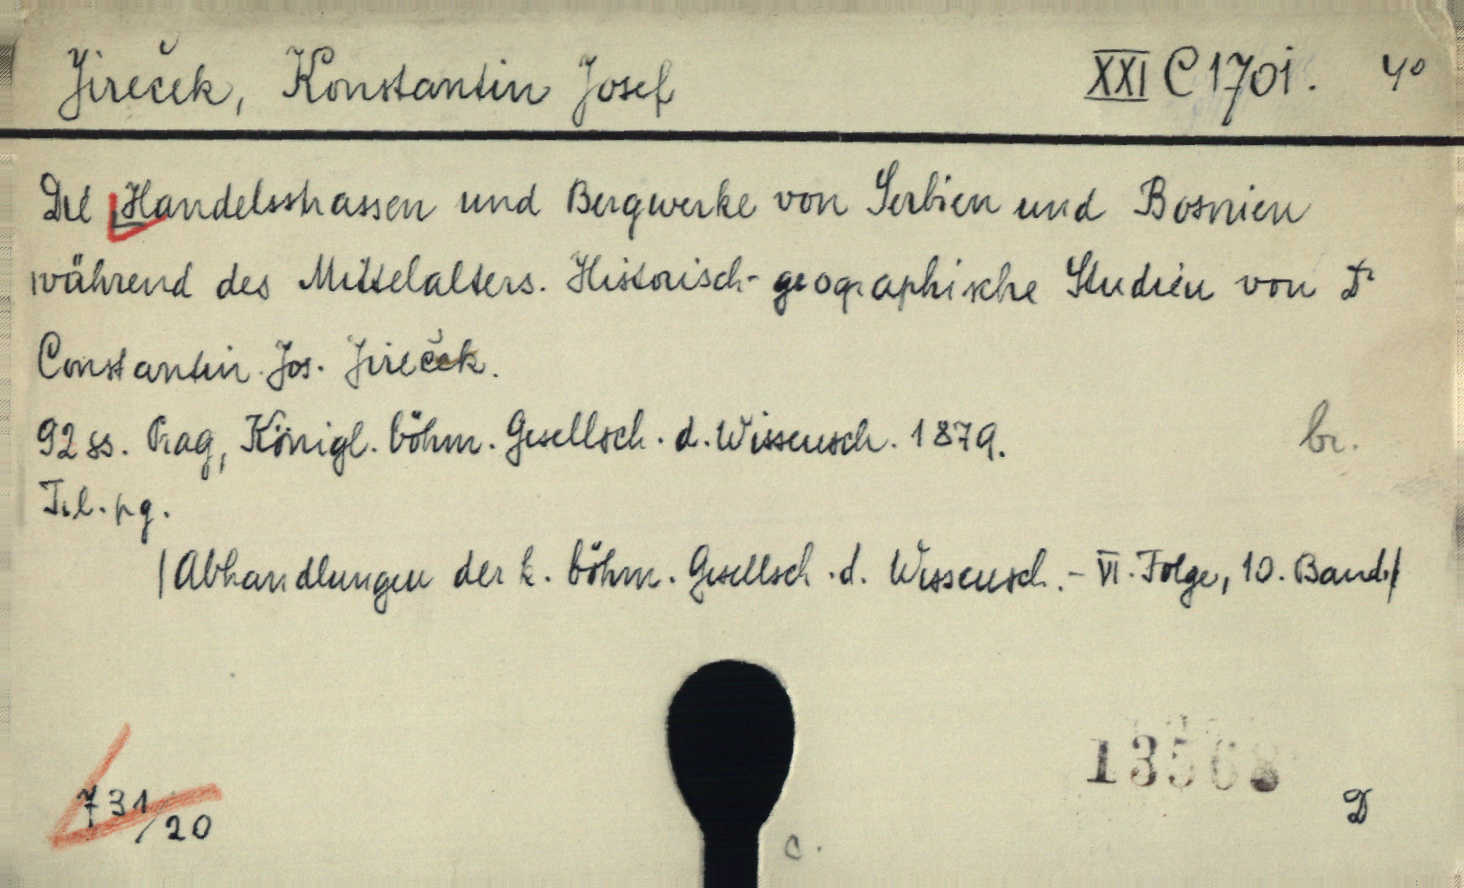 Jireček, Konstantin Josef XXI C 1701. 4°
Die Handelsstrassen und Bergwerke von Serbien und Bosnien
während des Mittelalters. Historisch-geographische Studien von Dr
Constantin Jos. Jireček.
92 ss. Prag, Königl. böhm. Gesellsch. d. Wissensch. 1879. br.
Tel. pg.
/Abhandlungen der k. böhm. Gesellsch. d. Wissensch. - VI. Folge, 10. Band./
13568
731/20 D
c.